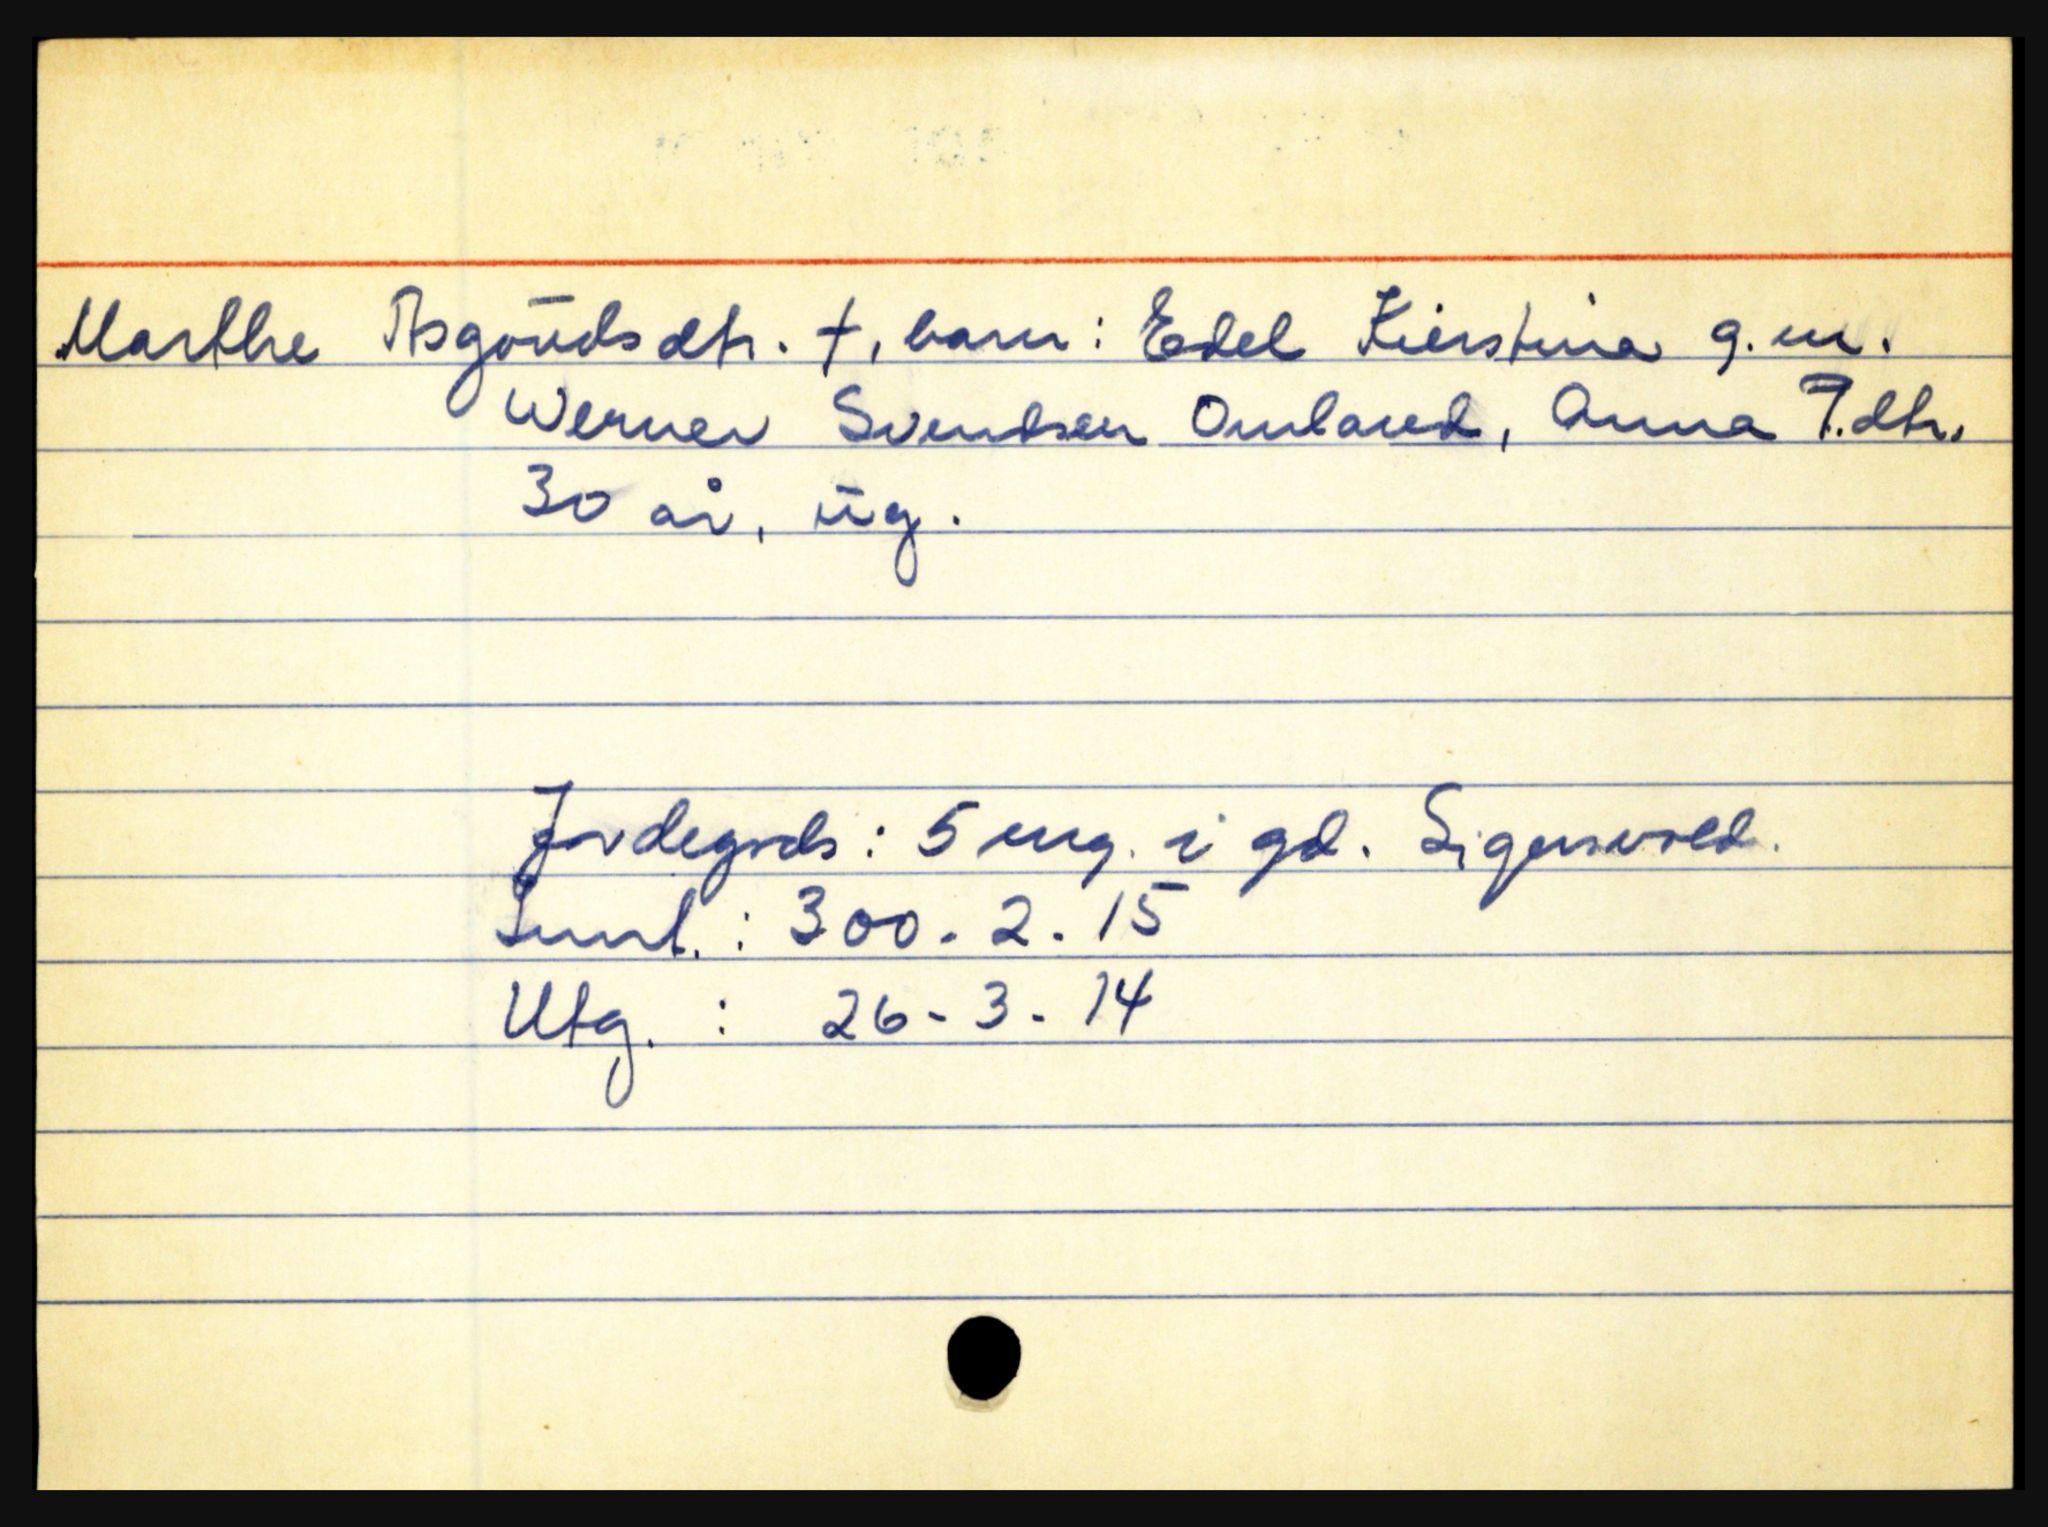 Marthe Asgoudsdtr. †, barn: Edel Kierstina g.m.
Werner Svendsen Omland, Anna T.dtr.
30 år, ug.
Jordegods: 5 eng. i gd. Sigersvold.
Suml.: 300-2-15
Utg. : 26-3-14